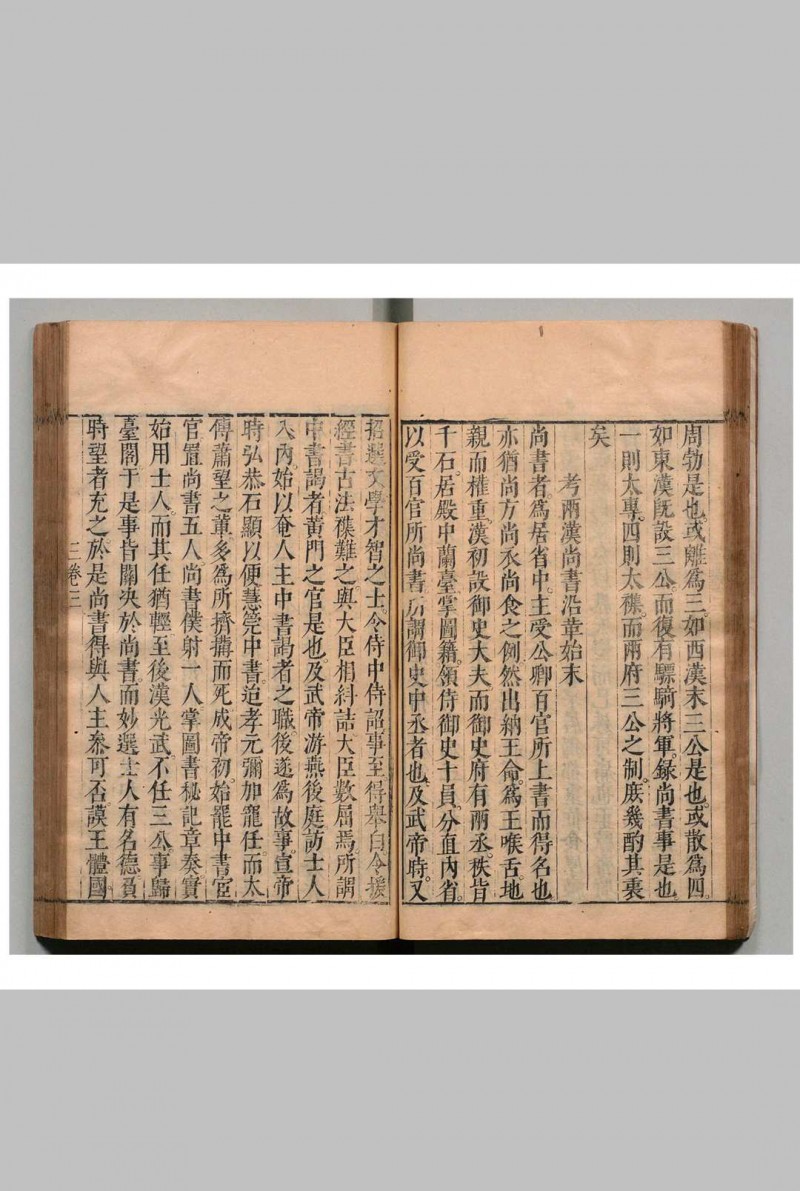 周勃是也或離爲三如西漢末三公是也或散爲四
如東漢旣設三公而復有驃騎將軍錄尚書事是也
一則太專四則大襍而兩府三公之制庶幾酌其衷
矣
考兩漢尚書沿革始末
尚書者爲居省中主受公卿百官所上書而得名也
亦猶尚方尚衣尚食之例然出納王命爲王喉舌地
親而權重漢初設御史大夫而御史府有兩丞秩皆
千石居殿中蘭臺掌圖籍領侍御史十員分直內省
以受百官所尚書所謂御史中丞者也及武帝時又
招選文學才智之士令侍中侍詔事至得舉白令援
經書古法襍難之與大臣相糾詰大臣數屈焉所謂
中書謁者黃門之官是也及武帝游燕後庭訪士人
入內始以奄人主中書謁者之職後遂爲故事宣帝
時弘恭石顯以便慧筦中書迨孝元彌加寵任而太
傅蕭望之輩多爲所擠搆而死成帝初始罷中書宦
官置尚書五人尚書僕射一人掌圖書秘記章奏實
始用士人而其任猶輕至後漢光武不任三公事歸
臺閣于是事皆關决於尚書而妙選士人有名德負
時望者充之於是尚書得與人主叅可否謨王體國
三卷三